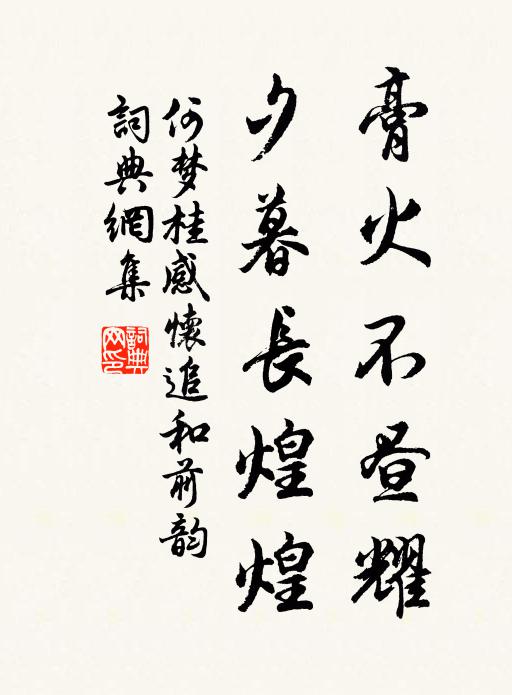 膏火不昼耀
夕暮長煌煌
何梦桂感懷追和前韵
詞典網集
詞典网印